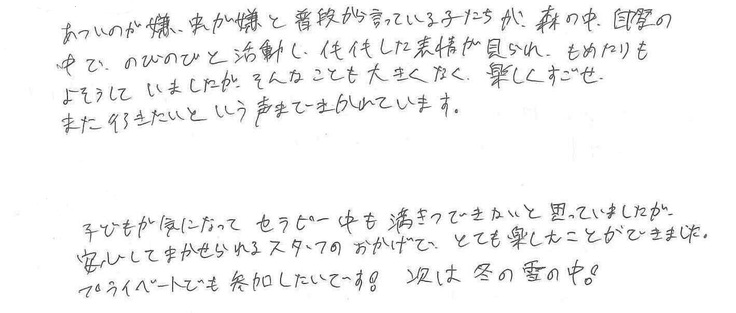 あついのが嫌、虫が嫌と普段から言っている子たちが、森の中、自然の
中で、のびのびと活動し、イキイキした表情が見られ、もめたりも
よそうしていましたが、そんなことも大きくなく、楽しくすごせ、
また行きたいという声まできかれています。
子どもが気になってセラピー中も満きつできないと思っていましたが、
安心してまかせられるスタッフのおかげで、とても楽しむことができました。
プライベートでも参加したいです! 次は冬の雪の中!